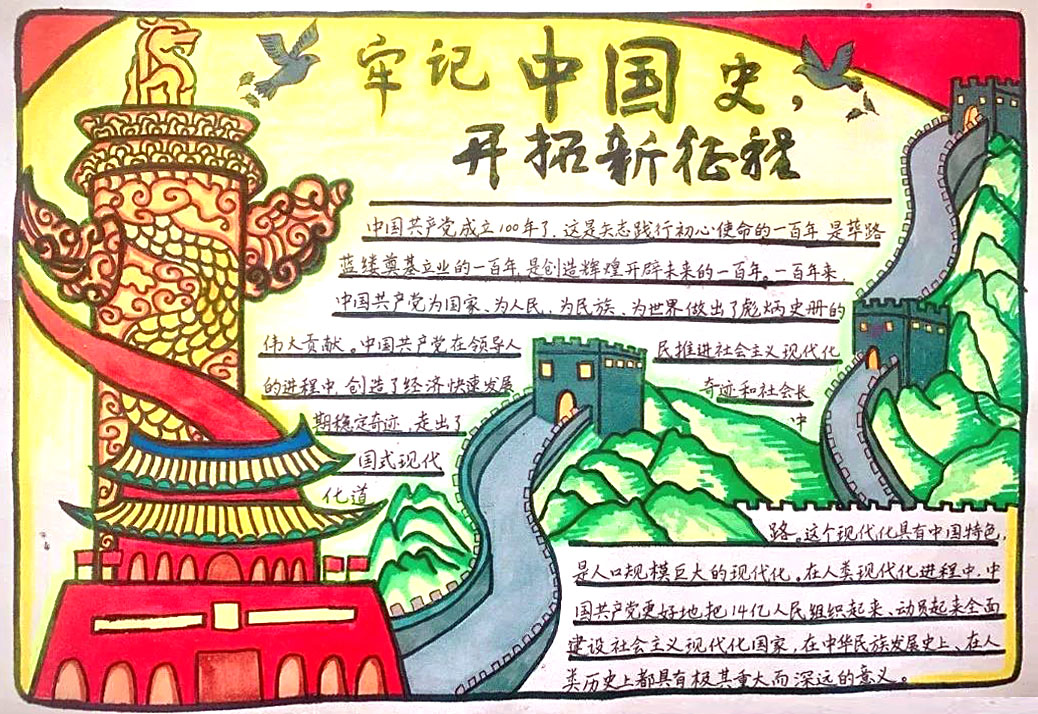 牢记中国史，
开拓新征程
中国共产党成立100年了，这是矢志践行初心使命的一百年，是筚路
蓝缕奠基立业的一百年，是创造辉煌开辟未来的一百年。一百年来，
中国共产党为国家、为人民、为民族、为世界做出了彪炳史册的
伟大贡献。中国共产党在领导人 民推进社会主义现代化
的进程中，创造了经济快速发展 奇迹和社会长
期稳定奇迹，走出了 中
国式现代
化道
路。这个现代化具有中国特色，
是人口规模巨大的现代化。在人类现代化进程中，中
国共产党更好地把14亿人民组织起来、动员起来全面
建设社会主义现代化国家，在中华民族发展史上、在人
类历史上都具有极其重大而深远的意义。